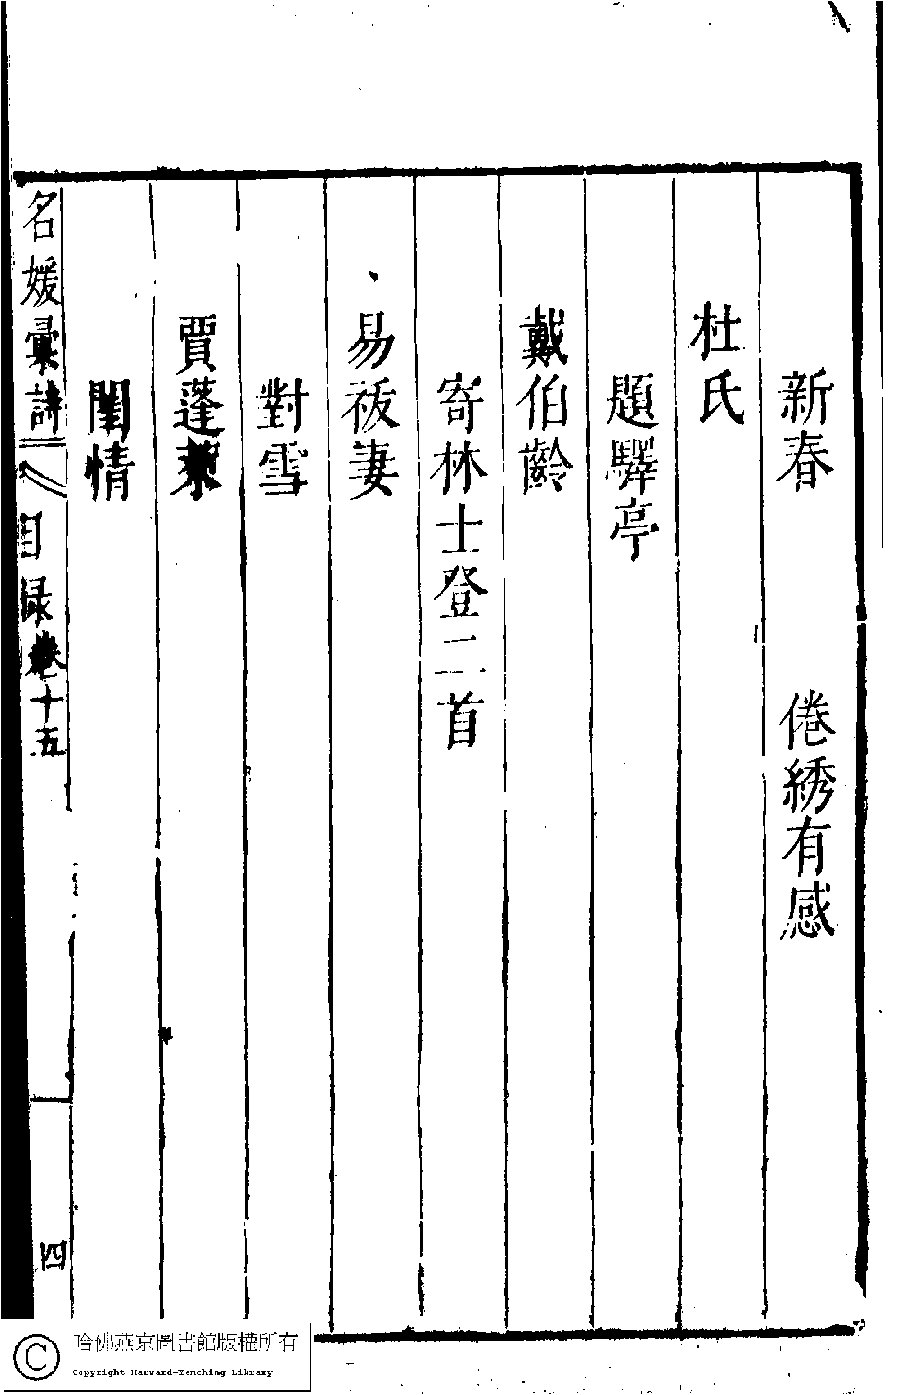 新春 倦綉有感
杜氏
題驛亭
戴伯齡
寄林士登二首
易祓妻
對雪
賈蓬萊
閨情
名媛彙詩 目録卷十五 四
哈佛燕京圖書館版權所有
Copyright Harvard-Yenching Library